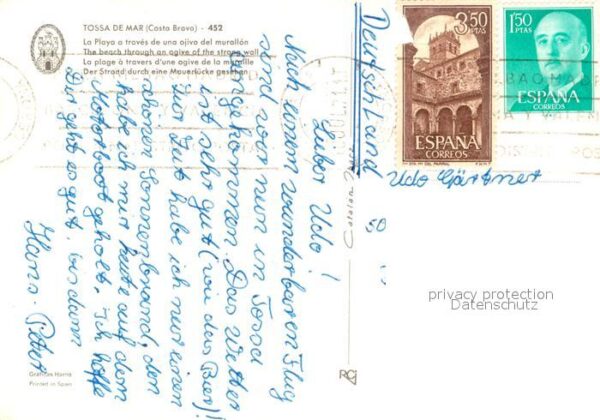 TOSSA DE MAR (Costa Brava) - 452
La Playa a través de una ojiva del murallón
The beach through an ogive of the strong wall
La plage à travers d'une ogive de la muraille
Der Strand durch eine Mauerlücke gesehen
Lieber Udo!
Nach einem wunderbaren Flug
sind wir nun in Tossa
angekommen. Das Wetter
ist sehr gut (wie das Bier)!
Zur Zeit habe ich nur einen
schönen Sonnenbrand, den
habe ich mir heute auf dem
Motorboot geholt. Ich hoffe
Dir geht es gut, bis dann
Hans-Peter
Deutschland
Udo Gärtner
3,50
PTAS
ESPAÑA
CORREOS
1'50
PTAS
ESPAÑA
CORREOS
privacy protection
Datenschutz
Printed in Spain